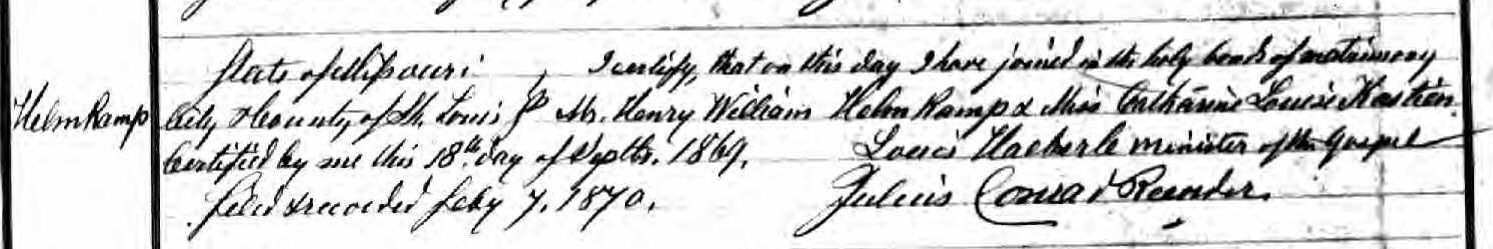 State of Missouri } I certify, that on this day I have joined in the holy bonds of matrimony
HelmKamp City & County of St. Louis } Mr. Henry William HelmKamp & Miss Catharine Louise Kastien.
Certified by me this 18th day of Septbr. 1869. Louis Haeberle minister of the Gospel
filed & recorded feby 7, 1870. Julius Conrad Recorder.